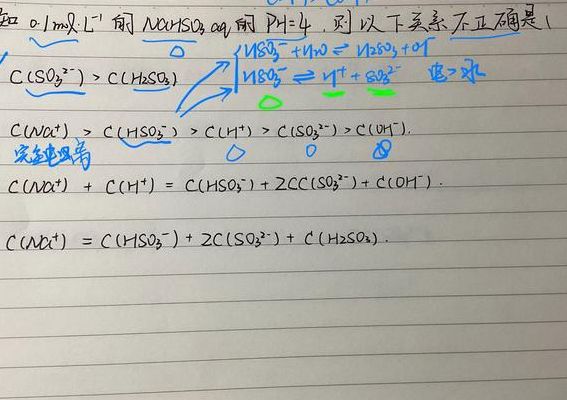 知 0.1mol·L⁻¹ 的 NaHSO₃ aq 的 PH=4, 则以下关系不正确是(
HSO₃⁻ + H₂O ⇌ H₂SO₃ + OH⁻
C(SO₃²⁻) > C(H₂SO₃)
HSO₃⁻ ⇌ H⁺ + SO₃²⁻ 电>水
C(Na⁺) > C(HSO₃⁻) > C(H⁺) > C(SO₃²⁻) > C(OH⁻).
完全电离
C(Na⁺) + C(H⁺) = C(HSO₃⁻) + 2C(SO₃²⁻) + C(OH⁻).
C(Na⁺) = C(HSO₃⁻) + 2C(SO₃²⁻) + C(H₂SO₃).